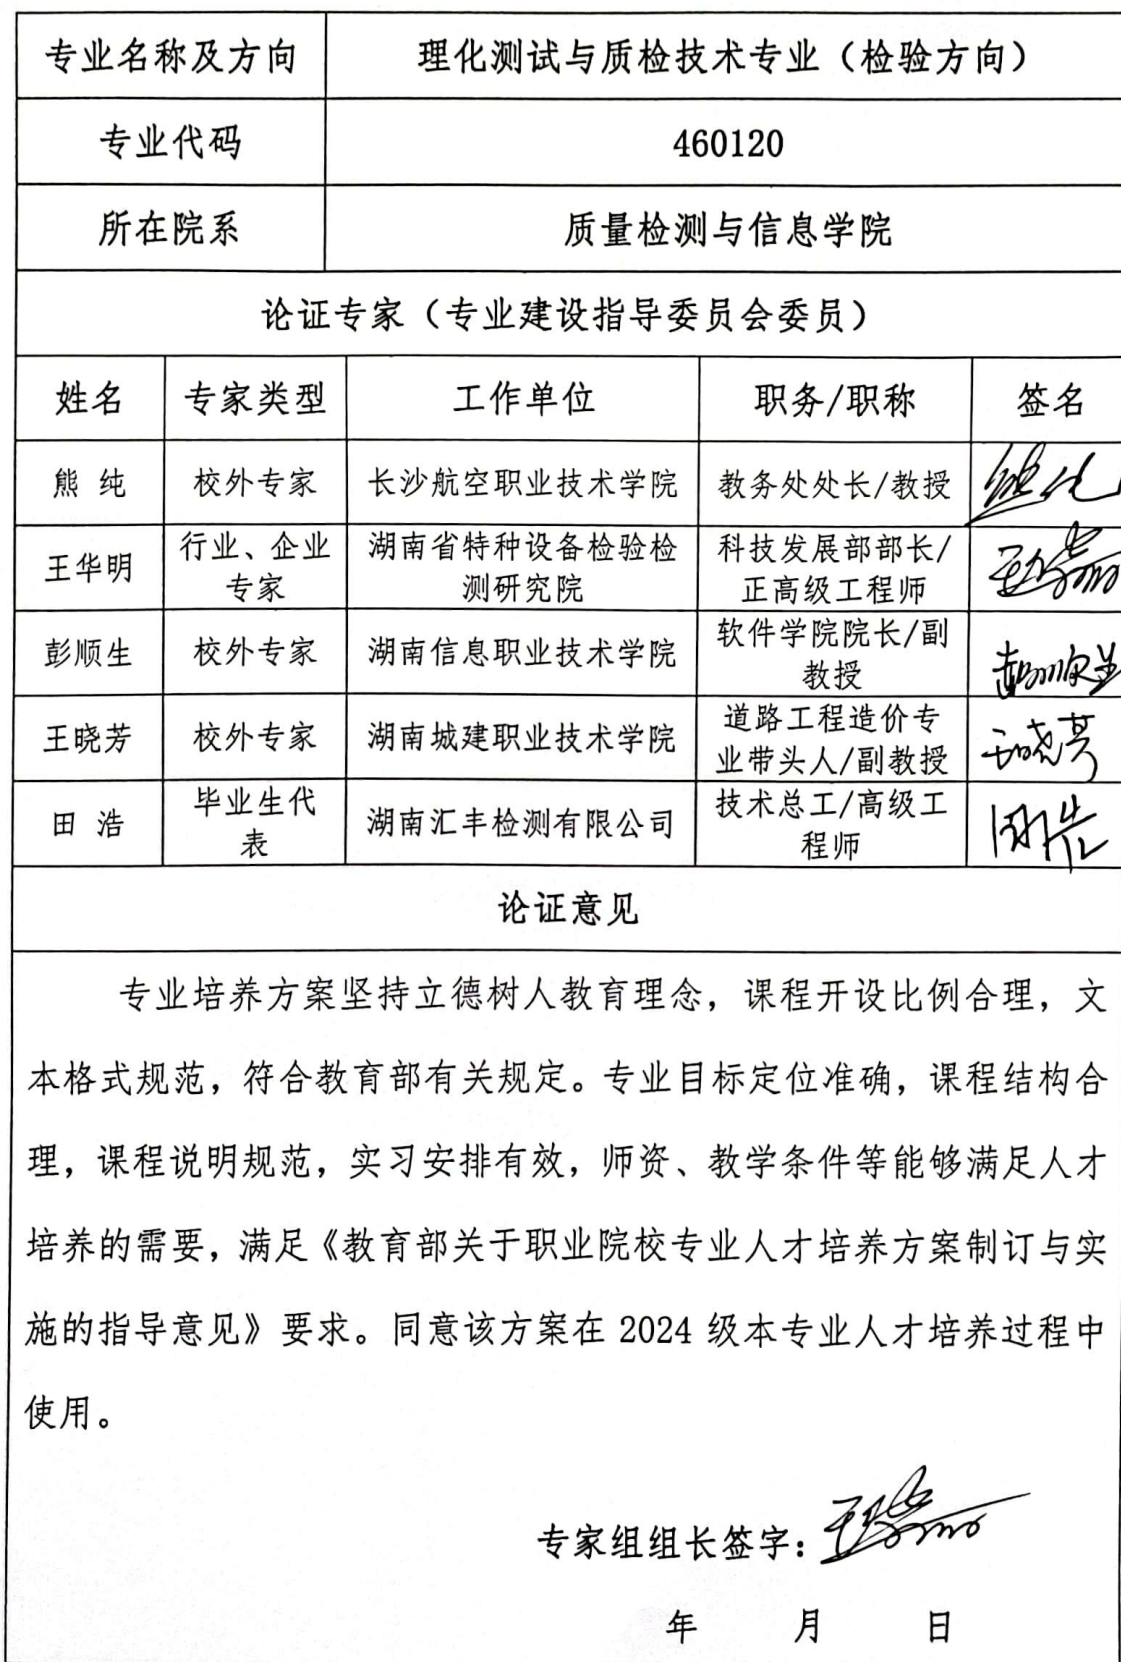 专业名称及方向 理化测试与质检技术专业（检验方向）
专业代码 460120
所在院系 质量检测与信息学院
论证专家（专业建设指导委员会委员）
姓名 专家类型 工作单位 职务/职称 签名
熊 纯 校外专家 长沙航空职业技术学院 教务处处长/教授
王华明 行业、企业专家 湖南省特种设备检验检测研究院 科技发展部部长/正高级工程师
彭顺生 校外专家 湖南信息职业技术学院 软件学院院长/副教授 彭顺生
王晓芳 校外专家 湖南城建职业技术学院 道路工程造价专业带头人/副教授 王晓芳
田 浩 毕业生代表 湖南汇丰检测有限公司 技术总工/高级工程师 田浩
论证意见
专业培养方案坚持立德树人教育理念，课程开设比例合理，文
本格式规范，符合教育部有关规定。专业目标定位准确，课程结构合
理，课程说明规范，实习安排有效，师资、教学条件等能够满足人才
培养的需要，满足《教育部关于职业院校专业人才培养方案制订与实
施的指导意见》要求。同意该方案在 2024 级本专业人才培养过程中
使用。
专家组组长签字：
年 月 日